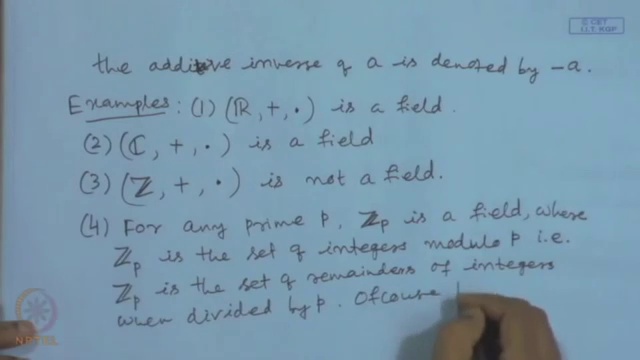 © CET
I.I.T. KGP
the additive inverse of a is denoted by -a.
Examples: (1) (ℝ, +, ·) is a field.
(2) (ℂ, +, ·) is a field
(3) (ℤ, +, ·) is not a field.
(4) For any prime p, ℤp is a field, where
ℤp is the set of integers modulo p i.e.
ℤp is the set of remainders of integers
when divided by p. Ofcourse
NPTEL